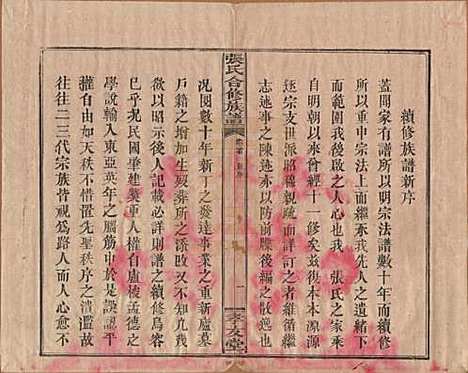 續修族譜新序
蓋聞家有譜所以明宗法譜數十年而續修
所以重申宗法上而繼承我先人之遺緒下
而亦以啟後之人心也我 張氏之家乘
自明朝以承曾經十一修矣茲復本本源源
迄宗支世派昭穆親疏而詳訂之者維循繼
志述事之陳迹亦以防前牒後編之散逸也
張氏合修族譜
新序
一
孝友堂
況閱數十年新丁之發達事業之重新廬墓
戶籍之增加生娶葬所之潘敗又不知凡幾
欲以昭示後人記載必詳則譜之續修烏容
已乎況民國肇建萬重人權白盧梭孟德之
學說輸入東亞英年之腦筋中於是誤認平
權自由如天秩不惜置先聖秩序之 濫故
往往二三代宗族皆視為路人而人心愈不